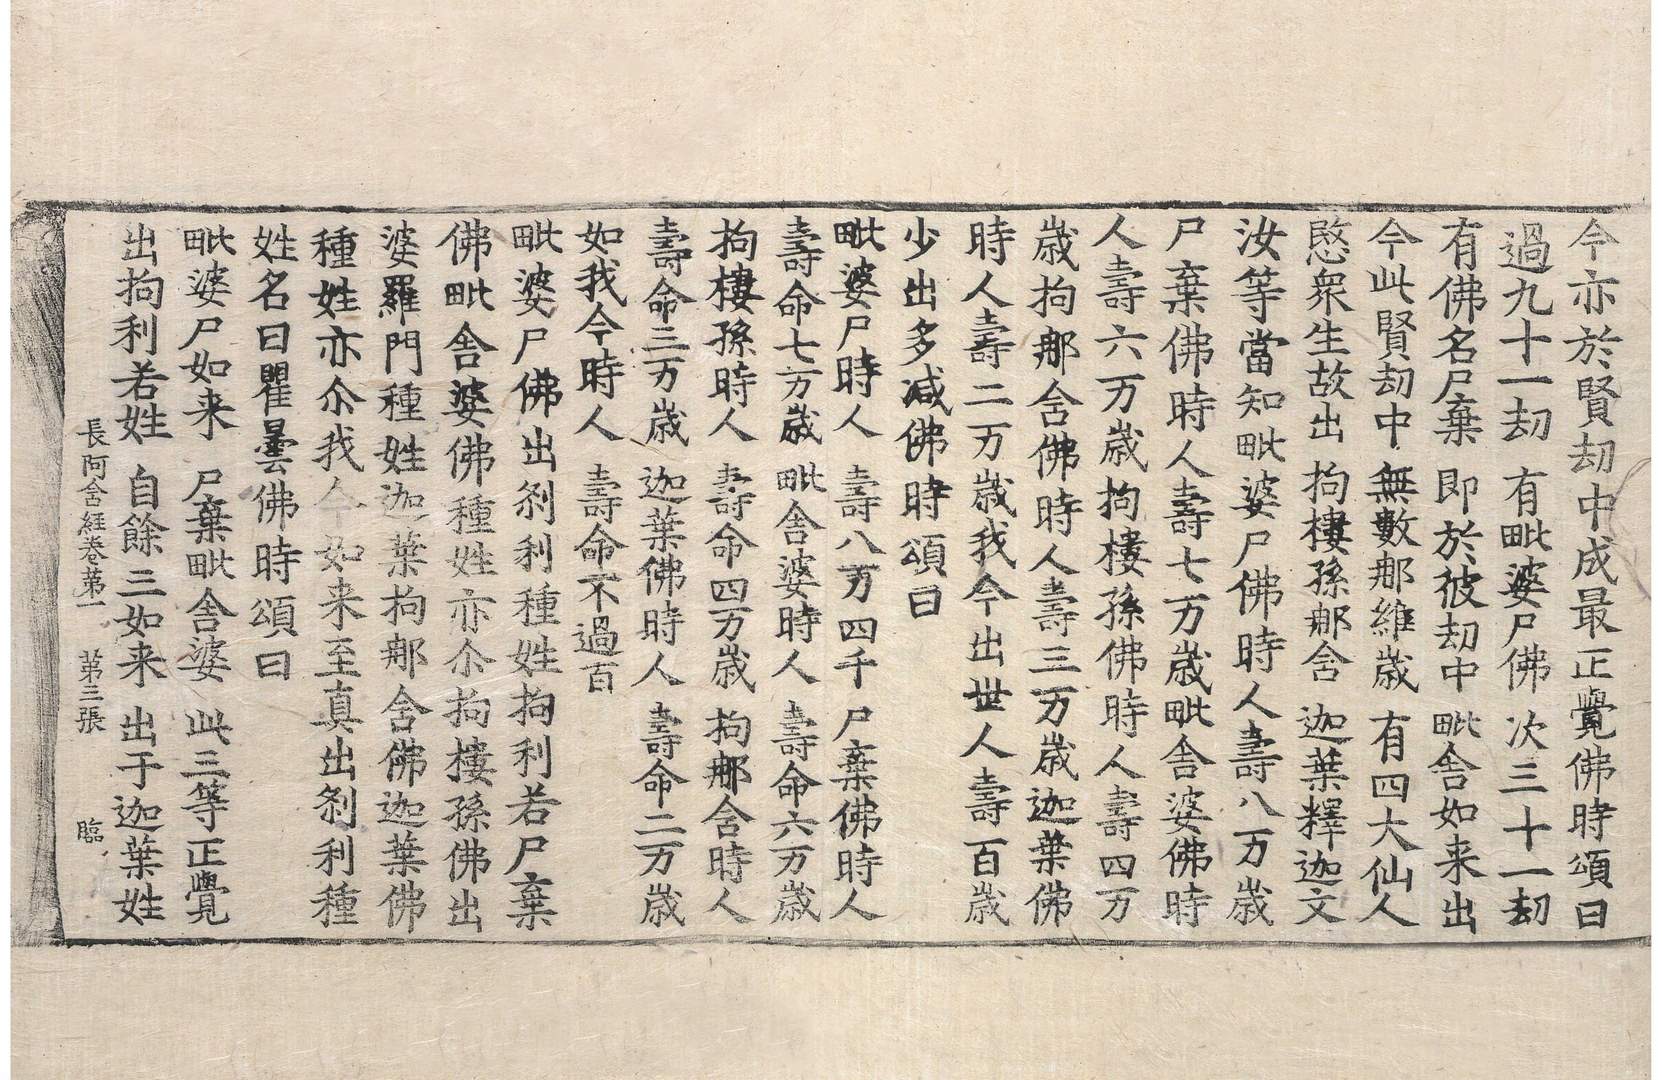 今亦於賢劫中成最正覺佛時頌曰
過九十一劫　有毗婆尸佛　次三十一劫
有佛名尸棄　即於彼劫中　毗舍如来出
今此賢劫中　無數那維歲　有四大仙人
愍衆生故出　拘樓孫那舍　迦葉釋迦文
汝等當知毗婆尸佛時人壽八万歲
尸棄佛時人壽七万歲毗舍婆佛時
人壽六万歲拘樓孫佛時人壽四万
歲拘那舍佛時人壽三万歲迦葉佛
時人壽二万歲我今出世人壽百歲
少出多减佛時頌曰
毗婆尸時人　壽八万四千　尸棄佛時人
壽命七万歲　毗舍婆時人　壽命六万歲
拘樓孫時人　壽命四万歲　拘那舍時人
壽命三万歲　迦葉佛時人　壽命二万歲
如我今時人　壽命不過百
毗婆尸佛出刹利種姓拘利若尸棄
佛毗舍婆佛種姓亦尒拘樓孫佛出
婆羅門種姓迦葉拘那舍佛迦葉佛
種姓亦尒我今如来至真出刹利種
姓名曰瞿曇佛時頌曰
毗婆尸如来　尸棄毗舍婆　此三等正覺
出拘利若姓　自餘三如来　出于迦葉姓
長阿含経卷第一　第三張　臨